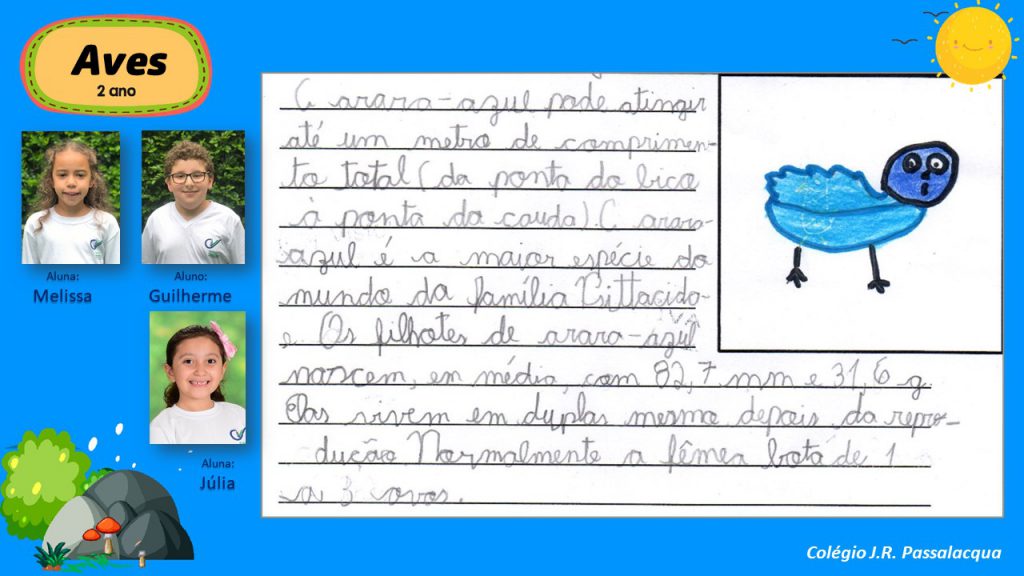 Aves
2 ano
A arara-azul pode atingir
até um metro de comprimen-
to total (da ponta do bico
à ponta da cauda). A arara-
azul é a maior espécie do
mundo da família Psittacida-
e. Os filhotes de arara-azul
nascem, em média, com 82,7 mm e 31,6 g.
Elas vivem em duplas mesmo depois da repro-
dução Normalmente a fêmea bota de 1
a 3 ovos.
Aluna:
Melissa
Aluno:
Guilherme
Aluna:
Júlia
Colégio J.R. Passalacqua